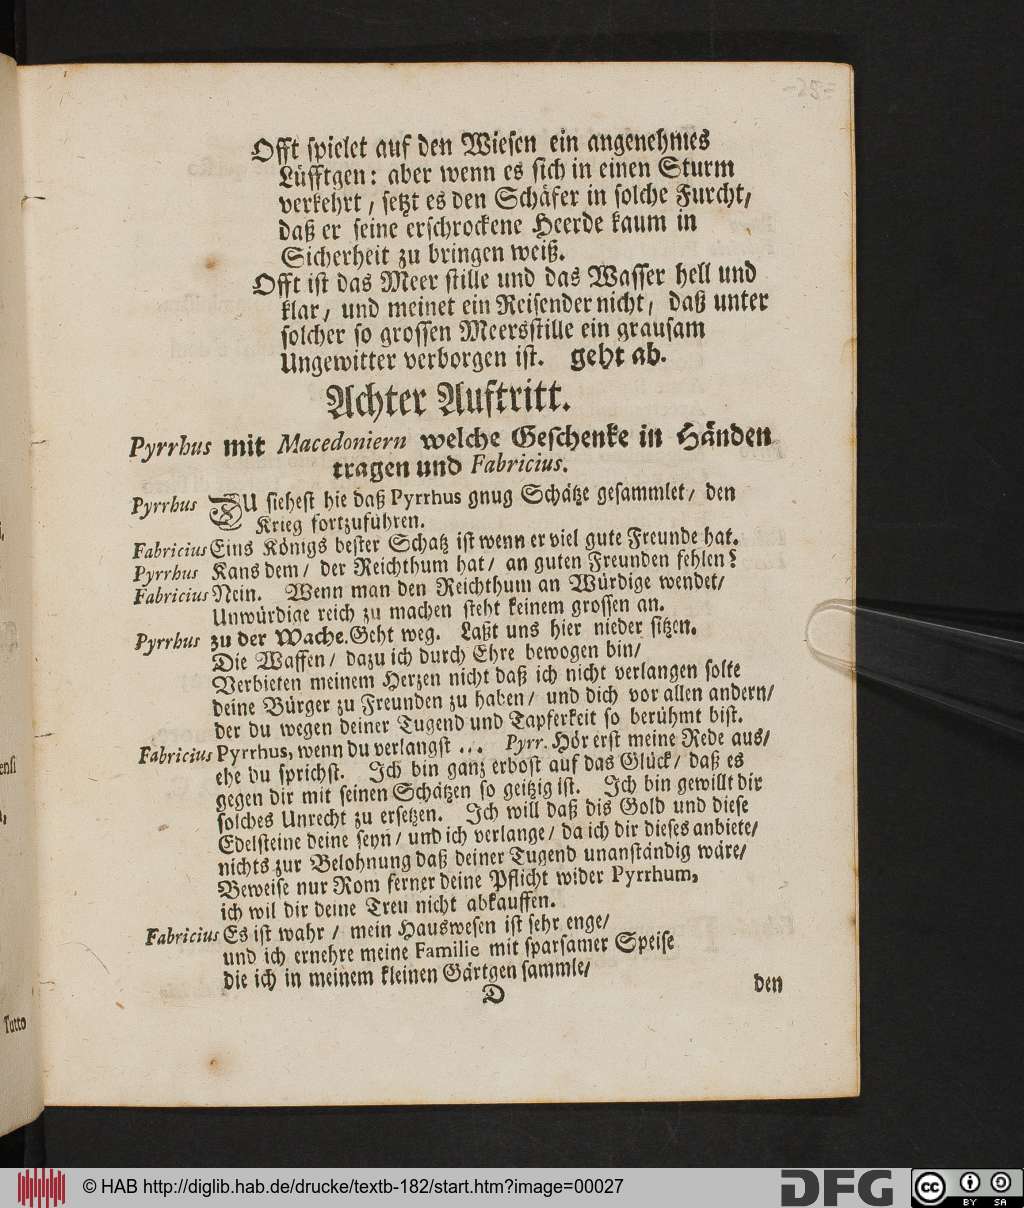 Offt spielet auf den Wiesen ein angenehmes
Lüfftgen: aber wenn es sich in einen Sturm
verkehrt / setzt es den Schäfer in solche Furcht /
daß er seine erschrockene Heerde kaum in
Sicherheit zu bringen weiß.
Offt ist das Meer stille und das Wasser hell und
klar / und meinet ein Reisender nicht / daß unter
solcher so grossen Meersstille ein grausam
Ungewitter verborgen ist. geht ab.
Achter Auftritt.
Pyrrhus mit Macedoniern welche Geschenke in Händen
tragen und Fabricius.
Pyrrhus DU siehest hie daß Pyrrhus gnug Schätze gesammlet / den
Krieg fortzuführen.
Fabricius Eins Königs bester Schatz ist wenn er viel gute Freunde hat.
Pyrrhus Kans dem / der Reichthum hat / an guten Freunden fehlen?
Fabricius Nein. Wenn man den Reichthum an Würdige wendet /
Unwürdige reich zu machen steht keinem grossen an.
Pyrrhus zu der Wache. Geht weg. Laßt uns hier nieder sitzen.
Die Waffen / dazu ich durch Ehre bewogen bin /
Verbieten meinem Herzen nicht daß ich nicht verlangen solte
deine Bürger zu Freunden zu haben / und dich vor allen andern /
der du wegen deiner Tugend und Tapferkeit so berühmt bist.
Fabricius Pyrrhus, wenn du verlangst ... Pyrr. Hör erst meine Rede aus /
ehe du sprichst. Ich bin ganz erbost auf das Glück / daß es
gegen dir mit seinen Schätzen so geitzig ist. Ich bin gewillt dir
solches Unrecht zu ersetzen. Ich will daß dis Gold und diese
Edelsteine deine seyn / und ich verlange / da ich dir dieses anbiete /
nichts zur Belohnung daß deiner Tugend unanständig wäre /
Beweise nur Rom ferner deine Pflicht wider Pyrrhum,
ich wil dir deine Treu nicht abkauffen.
Fabricius Es ist wahr / mein Hauswesen ist sehr enge /
und ich ernehre meine Familie mit sparsamer Speise
die ich in meinem kleinen Gärtgen sammle /
D den
Tutto
© HAB http://diglib.hab.de/drucke/textb-182/start.htm?image=00027
DFG
cc BY SA